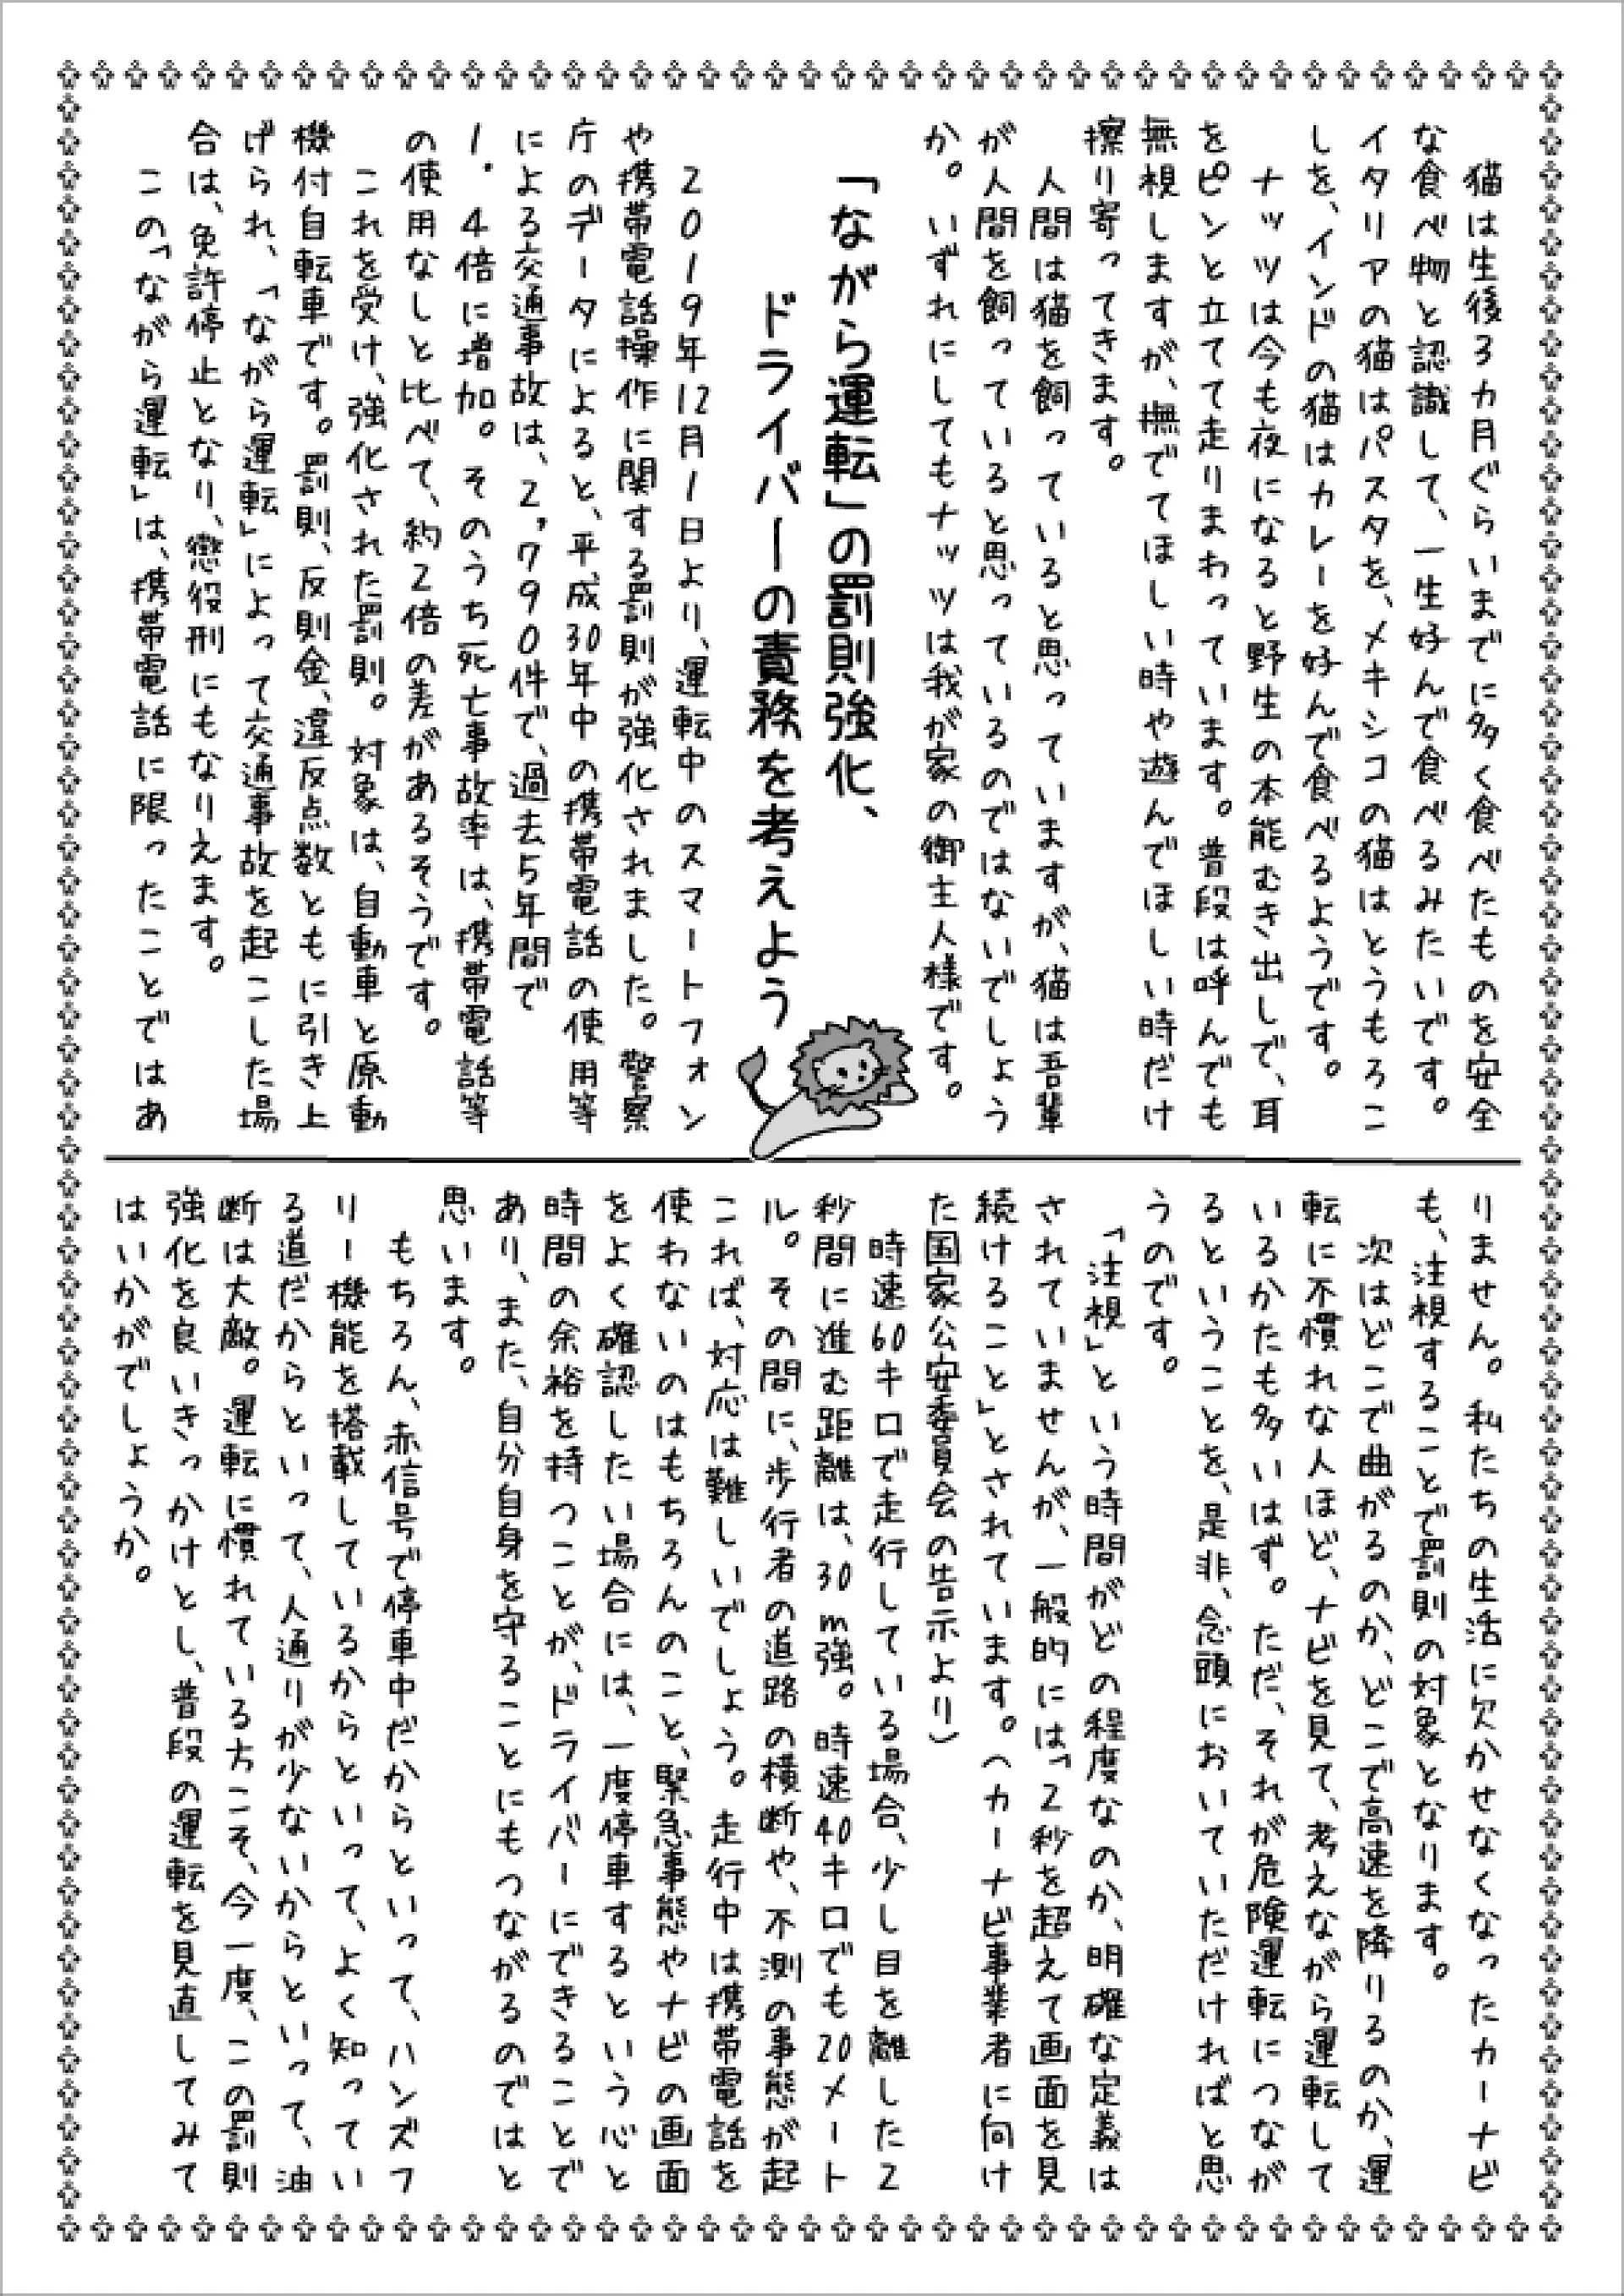 猫は生後3カ月ぐらいまでに多く食べたものを安全
な食べ物と認識して、一生好んで食べるみたいです。
イタリアの猫はパスタを、メキシコの猫はとうもろこ
しを、インドの猫はカレーを好んで食べるようです。
ナッツは今も夜になると野生の本能むき出しで、耳
をピンと立てて走りまわっています。普段は呼んでも
無視しますが、撫でてほしい時や遊んでほしい時だけ
擦り寄ってきます。
人間は猫を飼っていると思っていますが、猫は吾輩
が人間を飼っていると思っているのではないでしょう
か。いずれにしてもナッツは我が家の御主人様です。
「ながら運転」の罰則強化、
ドライバーの責務を考えよう
2019年12月1日より、運転中のスマートフォン
や携帯電話操作に関する罰則が強化されました。警察
庁のデータによると、平成30年中の携帯電話の使用等
による交通事故は、2,790件で、過去5年間で
1.4倍に増加。そのうち死亡事故率は、携帯電話等
の使用なしと比べて、約2倍の差があるそうです。
これを受け、強化された罰則。対象は、自動車と原動
機付自転車です。罰則、反則金、違反点数ともに引き上
げられ、「ながら運転」によって交通事故を起こした場
合は、免許停止となり、懲役刑にもなりえます。
この「ながら運転」は、携帯電話に限ったことではあ
りません。私たちの生活に欠かせなくなったカーナビ
も、注視することで罰則の対象となります。
次はどこで曲がるのか、どこで高速を降りるのか、運
転に不慣れな人ほど、ナビを見て、考えながら運転して
いるかたも多いはず。ただ、それが危険運転につなが
るということを、是非、念頭においていただければと思
うのです。
「注視」という時間がどの程度なのか、明確な定義は
されていませんが、一般的には「2秒を超えて画面を見
続けること」とされています。(カーナビ事業者に向け
た国家公安委員会の告示より)
時速60キロで走行している場合、少し目を離した2
秒間に進む距離は、30m強。時速40キロでも20メート
ル。その間に、歩行者の道路の横断や、不測の事態が起
これば、対応は難しいでしょう。走行中は携帯電話を
使わないのはもちろんのこと、緊急事態やナビの画面
をよく確認したい場合には、一度停車するという心と
時間の余裕を持つことが、ドライバーにできることで
あり、また、自分自身を守ることにもつながるのではと
思います。
もちろん、赤信号で停車中だからといって、ハンズフ
リー機能を搭載しているからといって、よく知ってい
る道だからといって、人通りが少ないからといって、油
断は大敵。運転に慣れている方こそ、今一度、この罰則
強化を良いきっかけとし、普段の運転を見直してみて
はいかがでしょうか。